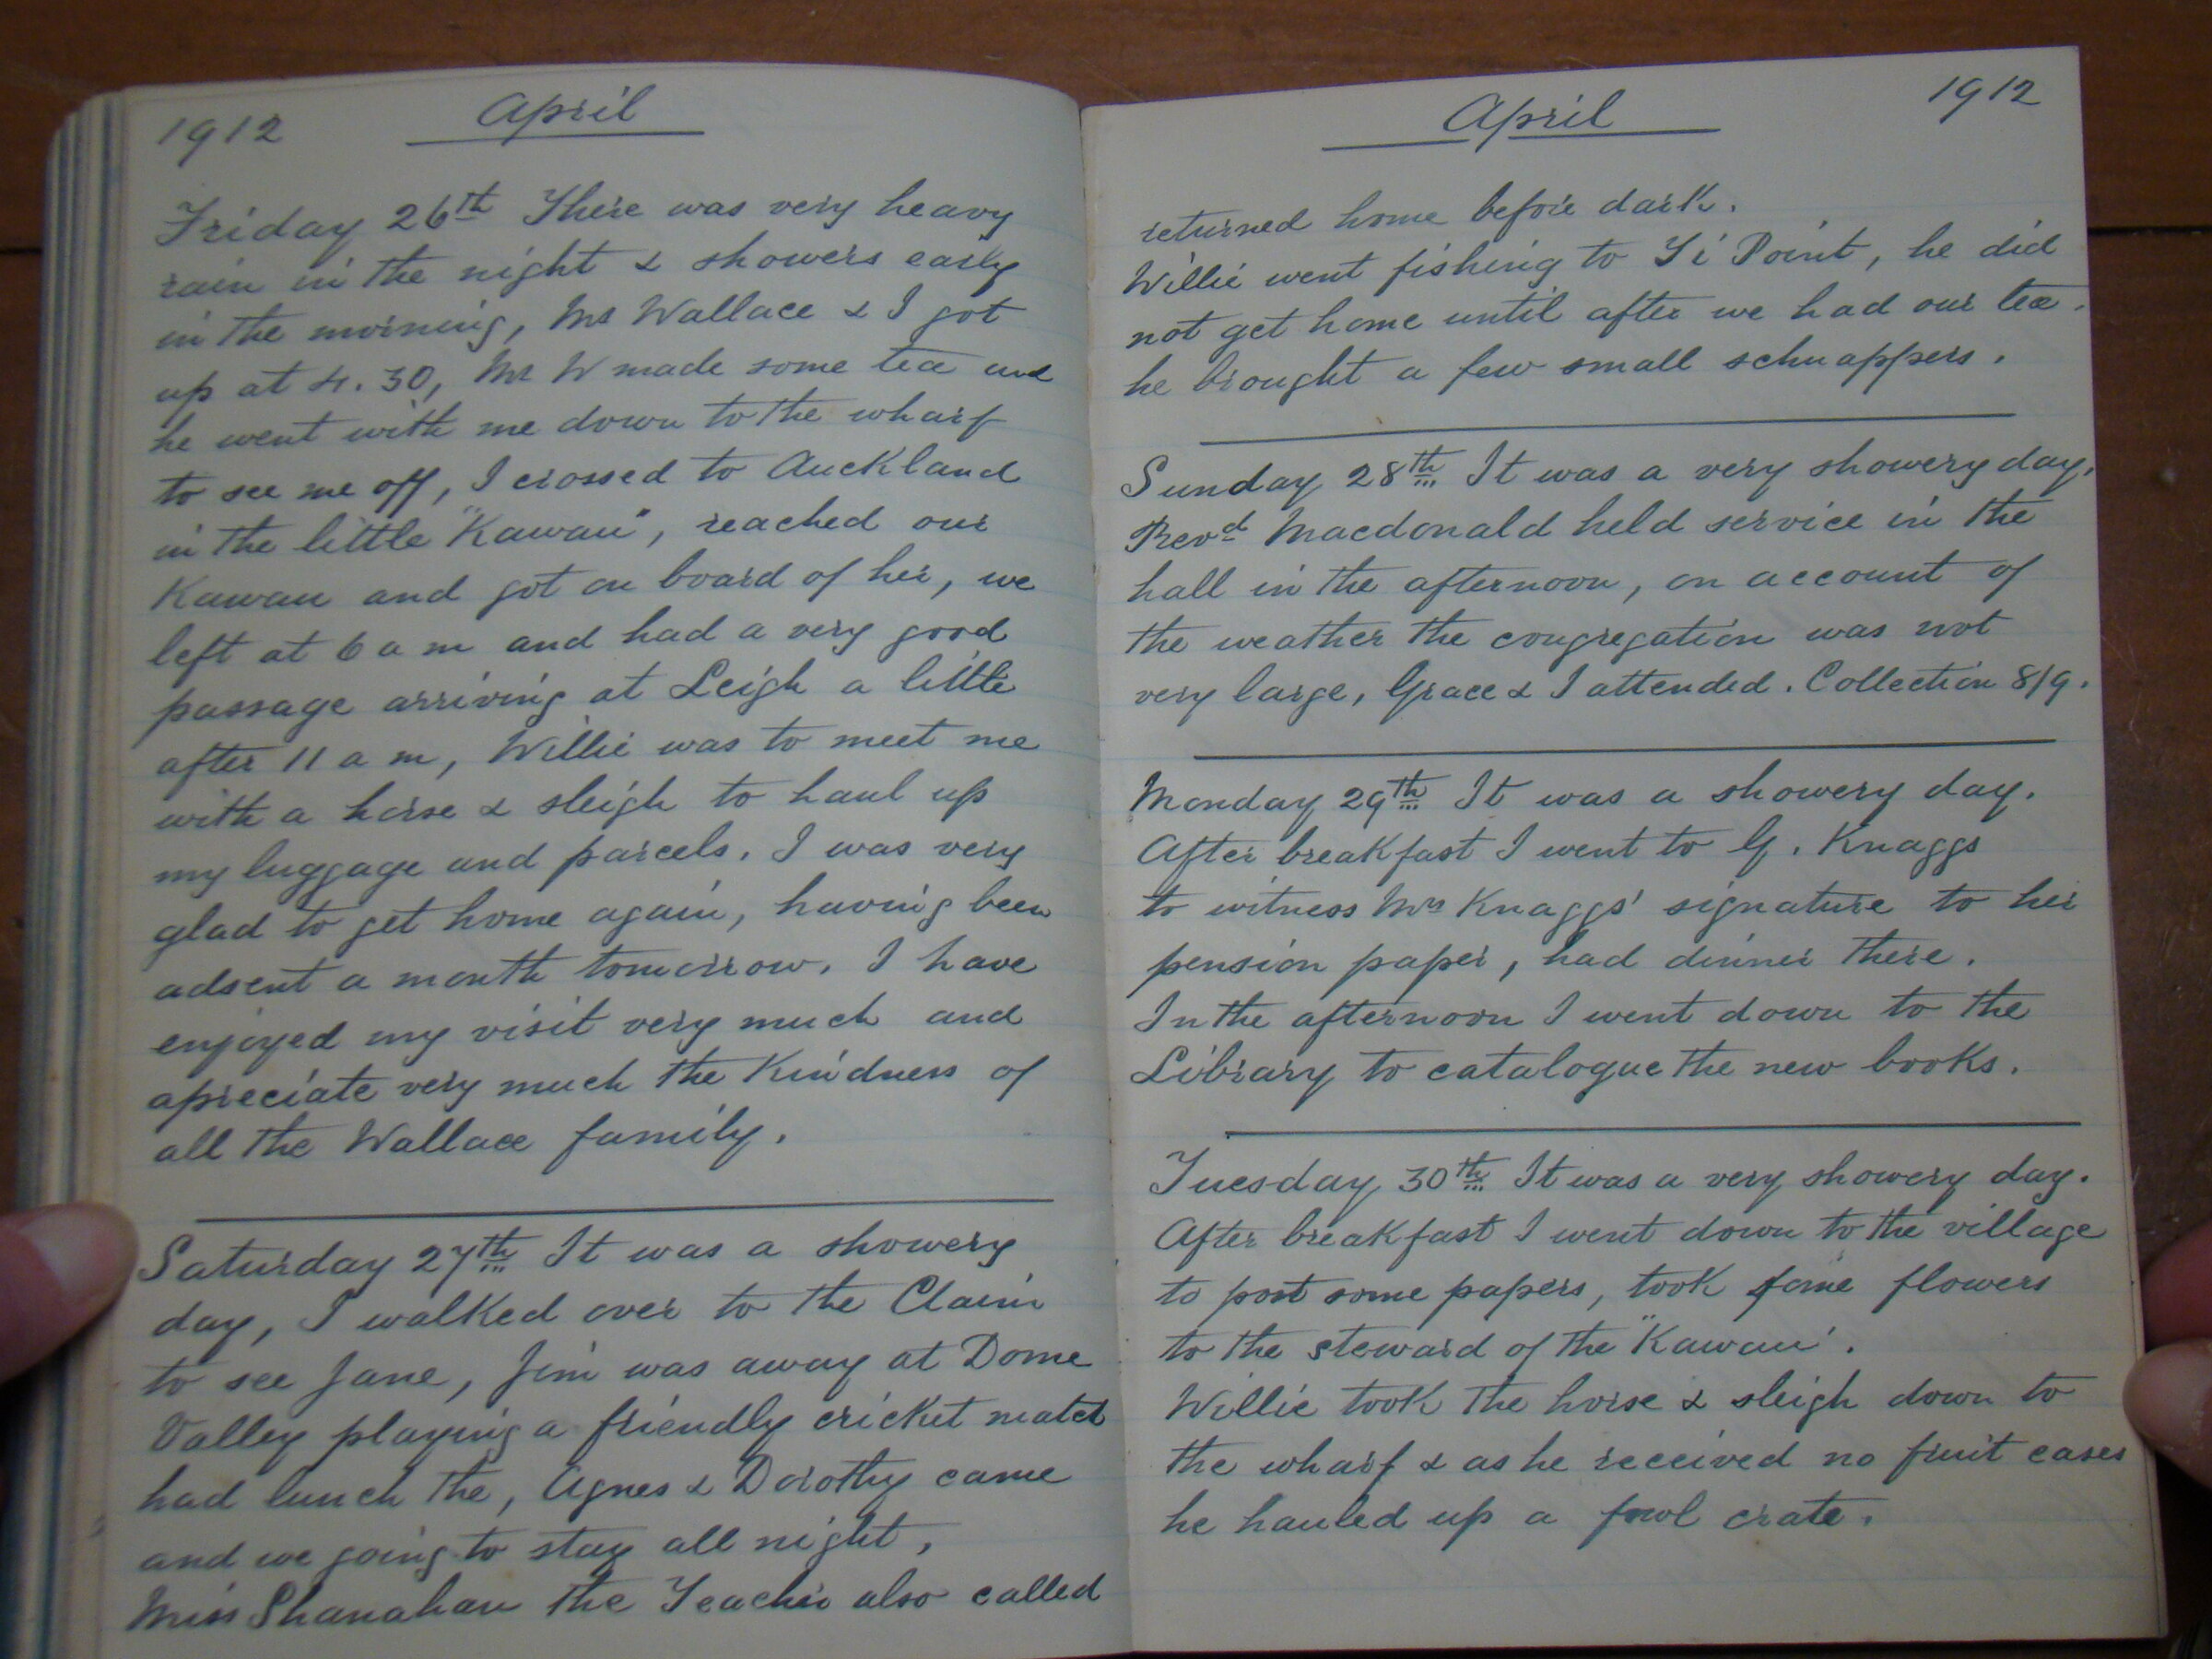 1912 April
Friday 26th There was very heavy
rain in the night & showers early
in the morning, Mr Wallace & I got
up at 4.30, Mr W made some tea and
he went with me down to the wharf
to see me off, I crossed to Auckland
in the little "Kawau", reached our
Kawau and got on board of her, we
left at 6 a m and had a very good
passage arriving at Leigh a little
after 11 a m, Willie was to meet me
with a horse & sleigh to haul up
my luggage and parcels. I was very
glad to get home again, having been
adsent a month tomorrow. I have
enjoyed my visit very much and
apreciate very much the Kindness of
all the Wallace family.
Saturday 27th It was a showery
day, I walked over to the Claim
to see Jane, Jim was away at Dome
Valley playing a friendly cricket match
had lunch the, Agnes & Dorothy came
and we going to stay all night,
Miss Shanahan the Teacher also called
April 1912
returned home before dark.
Willie went fishing to Ti Point, he did
not get home until after we had our tea.
he brought a few small schnappers.
Sunday 28th It was a very showery day.
Revd Macdonald held service in the
hall in the afternoon, on account of
the weather the congregation was not
very large, Grace & I attended. Collection 8/9.
Monday 29th It was a showery day.
After breakfast I went to G. Knaggs
to witness Mrs Knaggs' signature to her
pension paper, had dinner there.
In the afternoon I went down to the
Library to catalogue the new books.
Tuesday 30th It was a very showery day.
After breakfast I went down to the village
to post some papers, took some flowers
to the steward of the "Kawau'.
Willie took the horse & sleigh down to
the wharf & as he received no fruit cases
he hauled up a fowl crate.